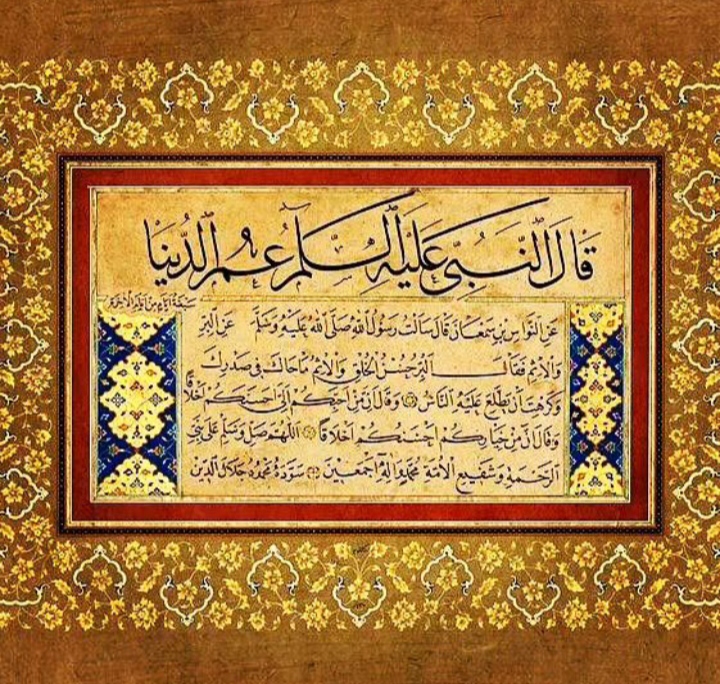 قَالَ النَّبِيُّ عَلَيْهِ السَّلَامُ عُمُرُ الدُّنْيَا
سَبْعَةُ أَيَّامٍ مِنْ أَيَّامِ الْآخِرَةِ
عَنِ النَّوَّاسِ بْنِ سَمْعَانَ قَالَ سَأَلْتُ رَسُولَ اللهِ صَلَّى اللهُ عَلَيْهِ وَسَلَّمَ عَنِ الْبِرِّ
وَالْإِثْمِ فَقَالَ الْبِرُّ حُسْنُ الْخُلُقِ وَالْإِثْمُ مَا حَاكَ فِي صَدْرِكَ
وَكَرِهْتَ أَنْ يَطَّلِعَ عَلَيْهِ النَّاسُ وَقَالَ إِنَّ مِنْ أَحَبِّكُمْ إِلَيَّ أَحْسَنَكُمْ أَخْلَاقًا
وَقَالَ إِنَّ مِنْ خِيَارِكُمْ أَحْسَنَكُمْ أَخْلَاقًا اللَّهُمَّ صَلِّ وَسَلِّمْ عَلَى نَبِيِّ
الرَّحْمَةِ وَشَفِيعِ الْأُمَّةِ مُحَمَّدٍ وَآلِهِ أَجْمَعِينَ سَوَّدَهُ مَحْمُود جَلَالُ الدِّين